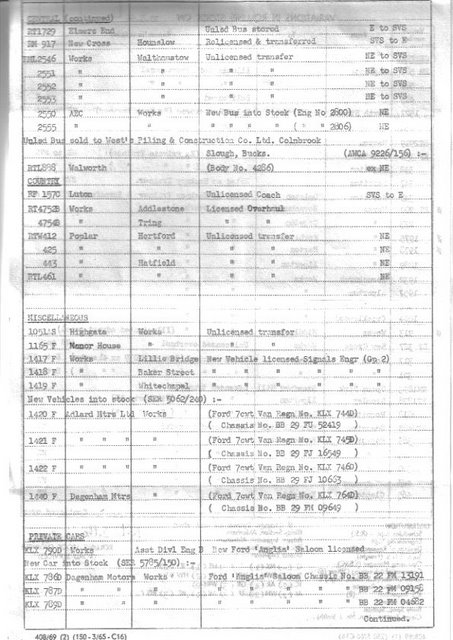 CENTRAL (continued)
RT1729 Elmers End Unlsd Bus stored E to SVS
RM 917 New Cross Hounslow Relicensed & transferred SVS to E
RML2546 Works Walthamstow Unlicensed transfer NE to SVS
2551 " " " " NE to SVS
2552 " " " " NE to SVS
2553 " " " " NE to SVS
2550 AEC Works New Bus into Stock (Eng No 2800) NE
2555 " " " " " " ( " " 2806) NE
Unlsd Bus sold to West's Piling & Construction Co. Ltd, Colnbrook
Slough, Bucks. (AWCA 9226/156) :-
RTL898 Walworth (Body No. 4286) ex NE
COUNTRY
RF 157C Luton Unlicensed Coach SVS to E
RT4752B Works Addlestone Licensed Overhaul
4754B " Tring " "
RTW412 Poplar Hertford Unlicensed transfer NE
425 " " " " NE
443 " Hatfield " " NE
RTL461 " " " " NE
MISCELLANEOUS
1051'S Highgate Works Unlicensed transfer
1165 F Manor House " " "
1417 F Works Lillie Bridge New Vehicle licensed-Signals Engr (Gp 2)
1418 F " Baker Street " " " " "
1419 F " Whitechapel " " " " "
New Vehicles into stock (SER 5062/240) :-
1420 F Adlard Mtrs Ltd Works (Ford 7cwt Van Regn No. KLX 744D)
( Chassis No. BB 29 FU 52419 )
1421 F " " " " (Ford 7cwt Van Regn No. KLX 745D)
( Chassis No. BB 29 FJ 16549 )
1422 F " " " " (Ford 7cwt Van Regn No. KLX 746D)
( Chassis No. BB 29 FJ 10633 )
1440 F Dagenham Mtrs " (Ford 7cwt Van Regn No. KLX 764D)
( Chassis No. BB 29 FM 09649 )
PRIVATE CARS
KLX 790D Works Asst Divl Eng B New Ford 'Anglia' Saloon licensed
New Car into Stock (SER 5785/150) :-
KLX 786D Dagenham Motors Works Ford 'Anglia' Saloon Chassis No. BB 22 FM 13191
KLX 787D " " " " " " " BB 22 FM 09158
KLX 789D " " " " " " " BB 22 FM 04682
Continued.
408/69 (2) (150-3/65-C16)